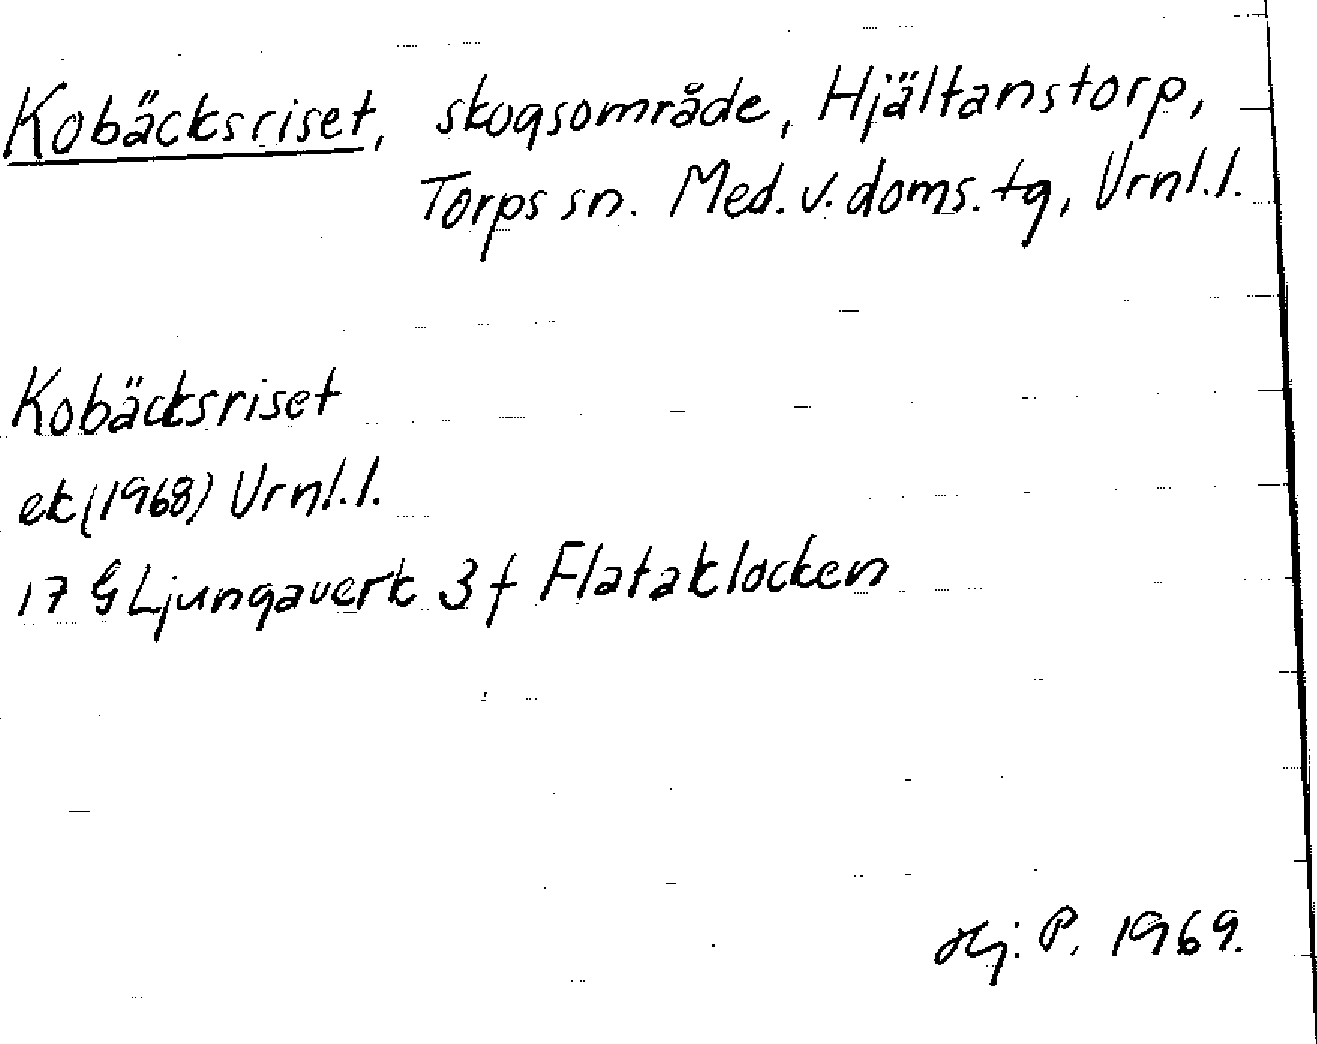 Kobäcksriset, skogsområde, Hjältanstorp,
Torps sn. Med. v. doms. tg, Vrnl. l.
Kobäcksriset
ek (1968) Vrnl. l.
17 G Ljungaverk 3 f Flataklocken
Hj. P. 1969.